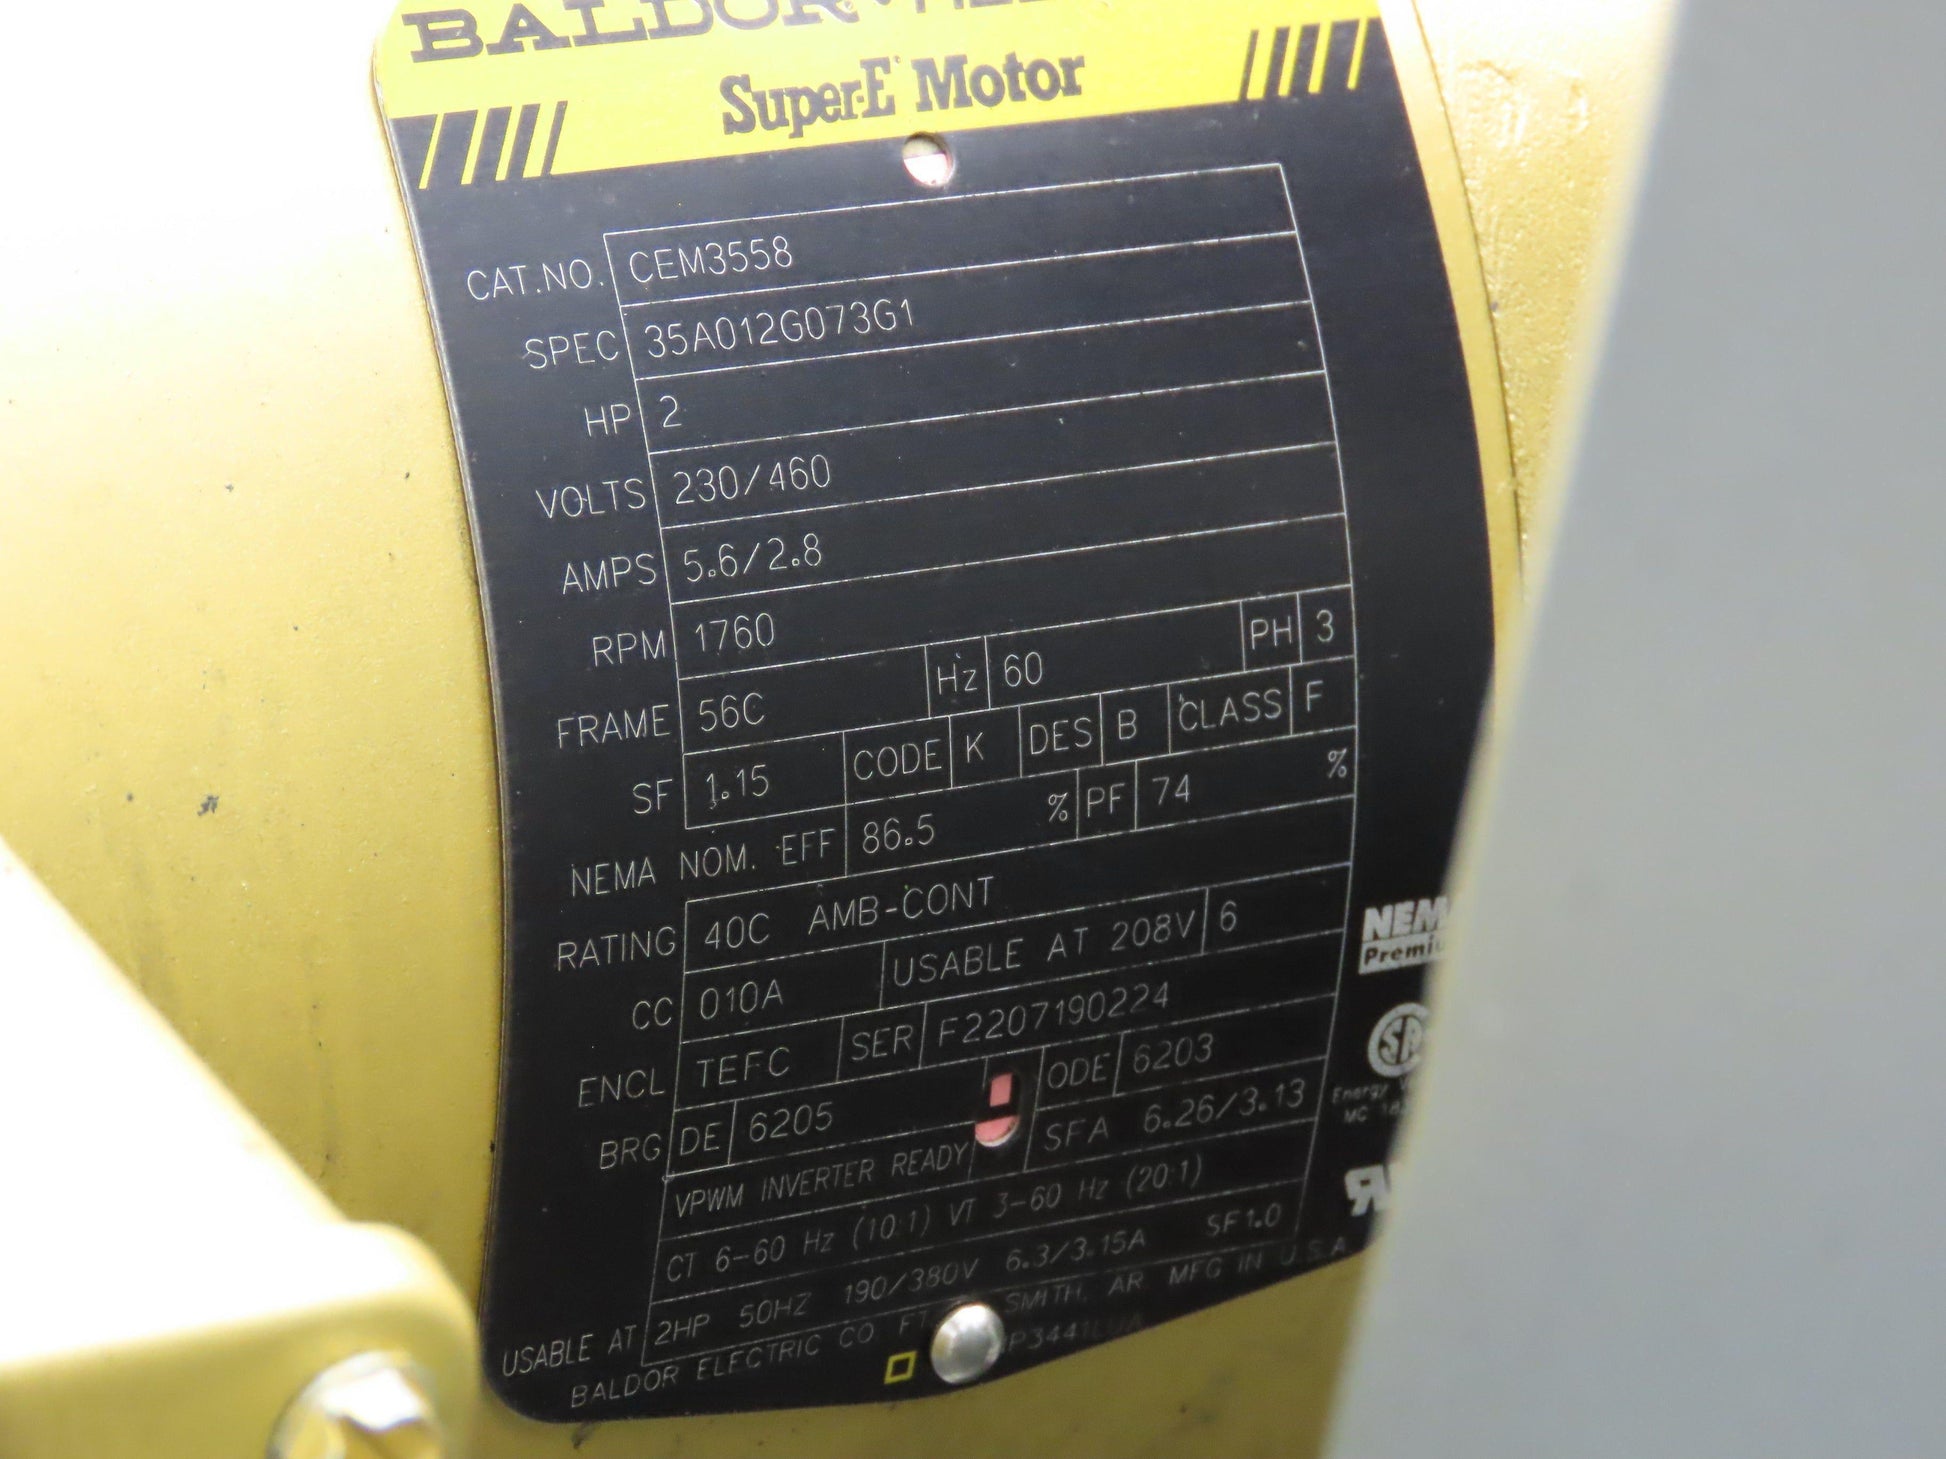 BALDOR
Super-E Motor
CAT.NO. CEM3558
SPEC 35A012G073G1
HP 2
VOLTS 230/460
AMPS 5.6/2.8
RPM 1760
FRAME 56C Hz 60 PH 3
SF 1.15 CODE K DES B CLASS F
NEMA NOM. EFF 86.5 % PF 74 %
RATING 40C AMB-CONT
CC 010A USABLE AT 208V 6
ENCL TEFC SER F2207190224
BRG DE 6205 ODE 6203
VPWM INVERTER READY SFA 6.26/3.13
CT 6-60 Hz (10:1) VT 3-60 Hz (20:1)
USABLE AT 2HP 50HZ 190/380V 6.3/3.15A SF1.0
BALDOR ELECTRIC CO SMITH, AR MFG IN U.S.A
Energy
MC